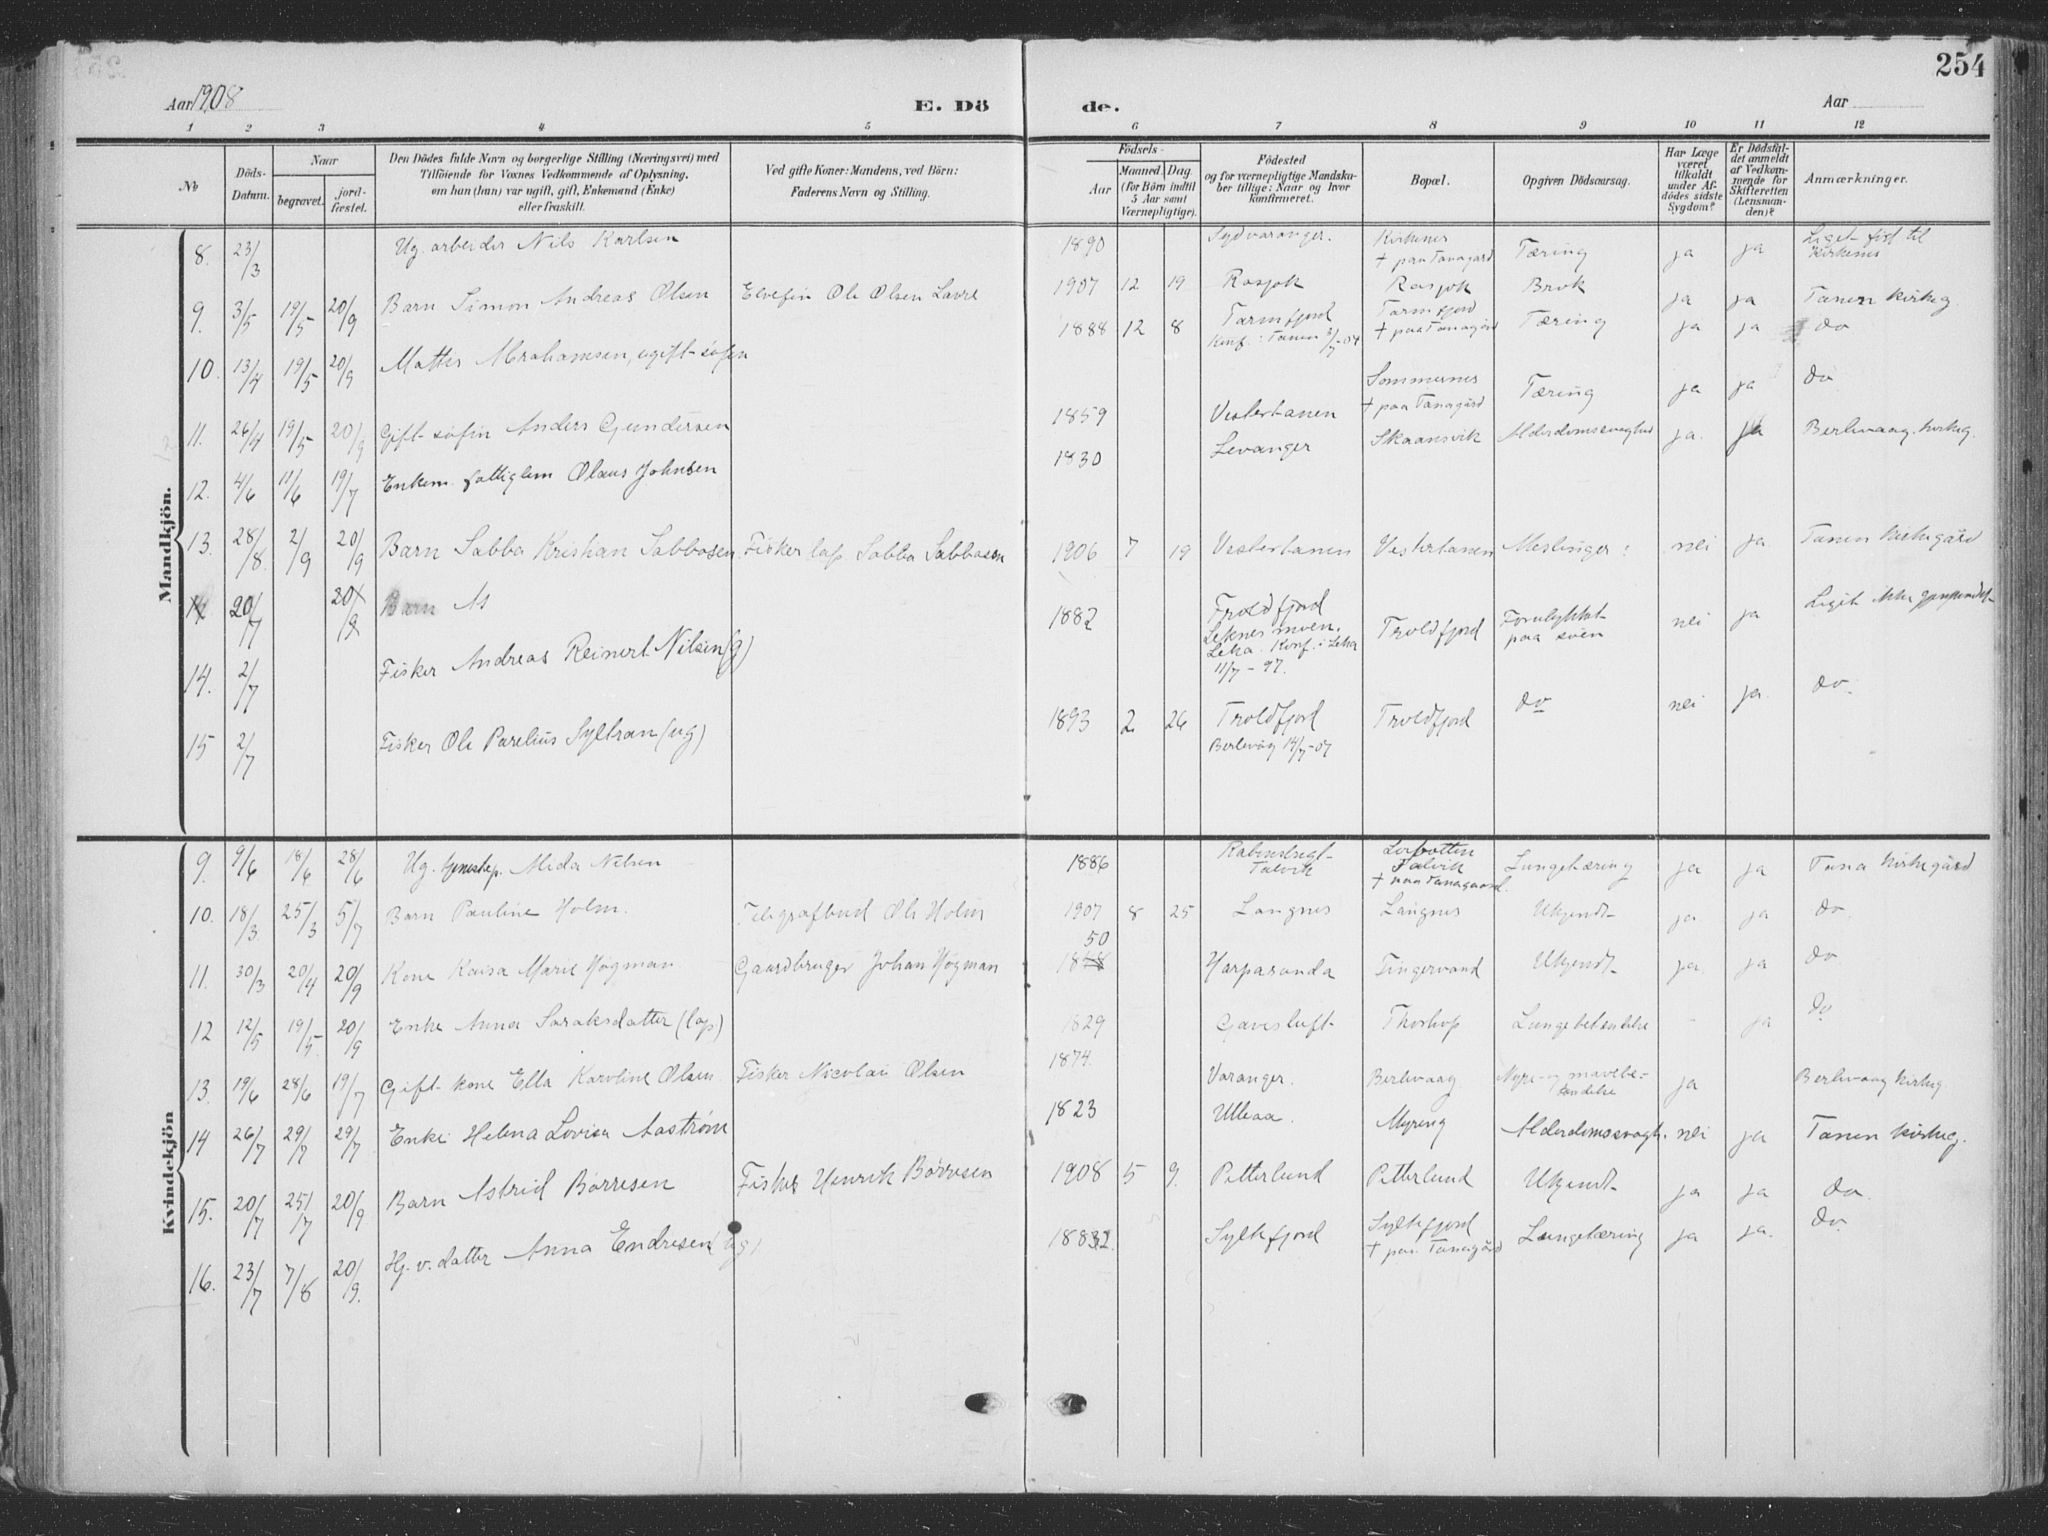 254
Aar 1908 E. Döde. Aar
1 2 3 4 5 6 7 8 9 10 11 12
No Döds-Datum. Naar begravet. jordfæstet. Den Dödes fulde Navn og borgerlige Stilling (Næringsvei) med Tilföiende for Voxnes Vedkommende af Oplysning, om han (hun) var ugift, gift, Enkemand (Enke) eller fraskilt. Ved gifte Koner: Mandens, ved Börn: Faderens Navn og Stilling. Födsels- Aar Maaned Dag (for Börn indtil 5 Aar samt Værnepligtige). Födested og for værnepligtige Mandskaber tillige: Naar og hvor konfirmeret. Bopæl. Opgiven Dödsaarsag. Har Læge været tilkaldt under Afdödes sidste Sygdom? Er Dödsfaldet anmeldt af Vedkommende for Skifteretten (Lensmanden)? Anmærkninger.
Mandkjön.
8. 23/3 Ug. arbeider Nils Karlsen 1890 Sydvaranger. Kirkenes + paa Tanagård Tæring ja ja Liget ført til Kirkenes
9. 3/5 19/5 20/9 Barn Simon Andreas Olsen Elvefin Ole Olsen Lavre 1907 12 19 Rasjok Rasjok Brok ja ja Tanen kirkeg.
10. 13/4 19/5 20/9 Mattis Abrahamsen, ugift søfin 1888 12 8 Tarmfjord Konf. i Tanen 3/7-04 Tarmfjord + paa Tanagård Tæring ja ja do
11. 26/4 19/5 20/9 Gift søfin Anders Gundersen 1859 Vestertanen Sommernes + paa Tanagård Tæring ja ja do
12. 4/6 11/6 19/7 Enkem. fattiglem Olaus Johnsen 1830 Levanger Skaansvik Alderdomssvaghed ja. ja Berlevaag. kirkeg.
13. 28/8 2/9 20/9 Barn Sabba Kristian Sabbasen. Fisker lap Sabba Sabbasen 1906 7 19 Vestertanen Vestertanen Meslinger nei ja Tanen kirkegård
14 20/7 20/9 Barn As
14. 2/7 Fisker Andreas Reinert Nilsen (g) 1882 Troldfjord Leknesmoen. Leka. Konf. i Leka 11/7-97. Troldfjord Forulykket paa søen nei ja Liget ikke gjenfundet
15 2/7 Fisker Ole Parelius Syltran (ug) 1893 2 26 Troldfjord Berlevåg 14/7-07 Troldfjord do nei ja. do.
Kvindekjön
9. 9/6 18/6 28/6 Ug. tjenestep. Alida Nilsen 1886 Talvik Talvik + paa Tanagaard. Lungetæring ja ja Tana kirkegård
10. 18/3 25/3 5/7 Barn Pauline Holm. Telegrafbud Ole Holm 1907 8 25 Langnes Langnes Ukjendt ja. ja do
11. 30/3 20/4 20/9 Kone Kaisa Marie Høgman Gaardbruger Johan Høgman 1848 50 Harparanda Fingervand Ukjendt ja. ja do
12 12/5 19/5 20/9 Enke Anna Saraksdatter (lap) 1829 Gavesluft Thorhop Lungebetændelse - ja do
13. 19/6 28/6 19/7 Gift kone Ella Karoline Olsen. Fisker Nicolai Olsen 1874. Varanger. Berlevaag Nyre og mavebetændelse ja Berlevaag kirkeg
14 26/7 29/7 29/7 Enke Helena Lovisa Aastrøm 1823 Uleaa. Myreng Alderdomssvagh. nei ja Tanen kirkeg.
15. 20/7 25/7 20/9 Barn Astrid Børresen Fisker Henrik Børresen 1908 5 9. Petterlund Petterlund Ukjendt ja ja do.
16. 23/7 7/8 20/9. Hj. v. datter Anna Endresen (ug) 1882. Syltefjord Syltefjord + paa Tanagård Lungetæring ja ja. do.